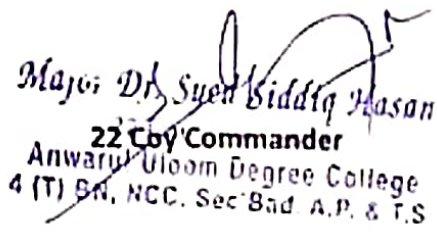 Major Dr. Syed Siddiq Hasan
22 Coy Commander
Anwarul Uloom Degree College
4 (T) BN, NCC, Sec'Bad. A.P. & T.S